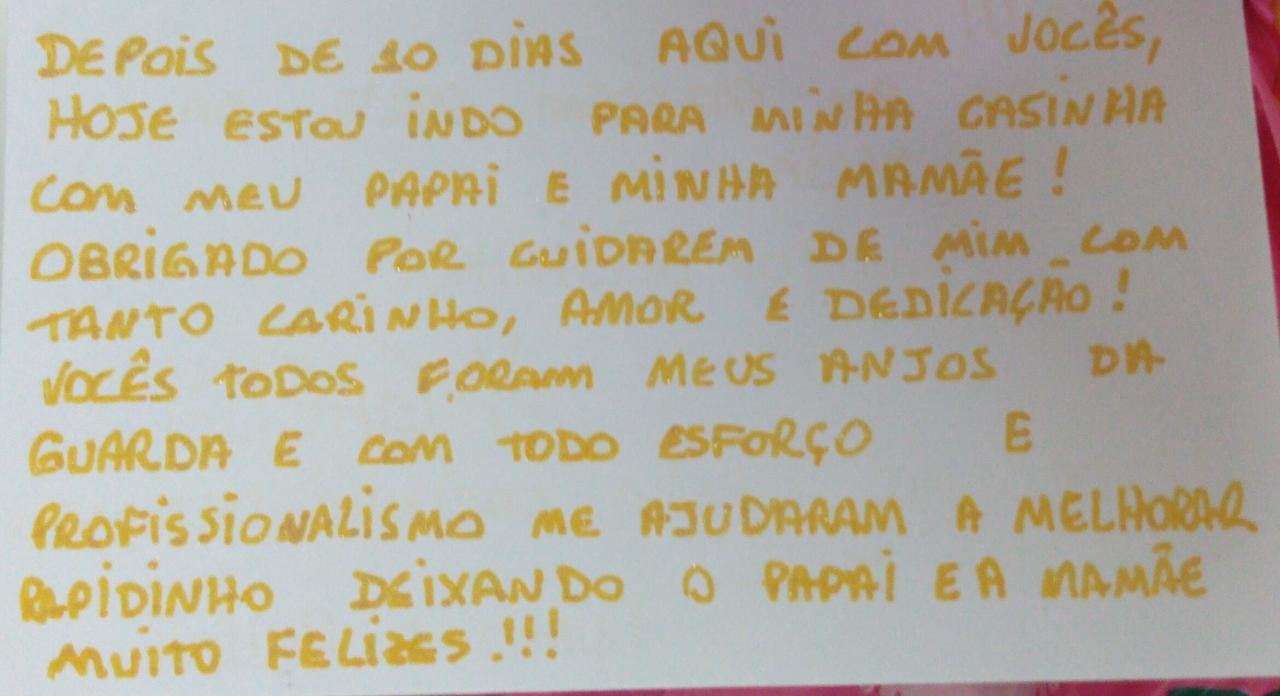 DEPOIS DE 10 DIAS AQUI COM VOCÊS,
HOJE ESTOU INDO PARA MINHA CASINHA
COM MEU PAPAI E MINHA MAMÃE!
OBRIGADO POR CUIDAREM DE MIM COM
TANTO CARINHO, AMOR E DEDICAÇÃO!
VOCÊS TODOS FORAM MEUS ANJOS DA
GUARDA E COM TODO ESFORÇO E
PROFISSIONALISMO ME AJUDARAM A MELHORAR
RAPIDINHO DEIXANDO O PAPAI E A MAMÃE
MUITO FELIZES!!!